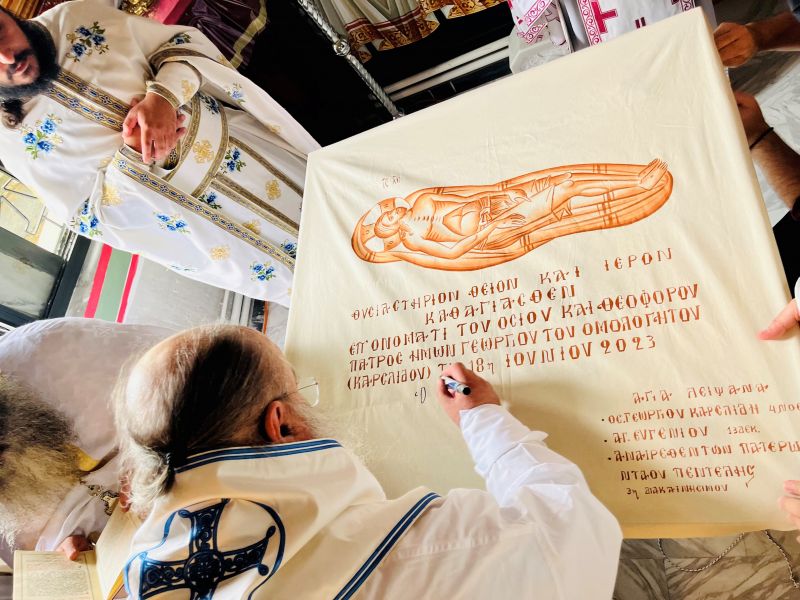 ΘΥΣΙΑΣΤΗΡΙΟΝ ΘΕΙΟΝ ΚΑΙ ΙΕΡΟΝ
ΚΑΘΑΓΙΑΣΘΕΝ
ΕΠ ΟΝΟΜΑΤΙ ΤΟΥ ΟΣΙΟΥ ΚΑΙ ΘΕΟΦΟΡΟΥ
ΠΑΤΡΟΣ ΗΜΩΝ ΓΕΩΡΓΙΟΥ ΤΟΥ ΟΜΟΛΟΓΗΤΟΥ
(ΚΑΡΣΛΙΔΟΥ) ΤΗ 18η ΙΟΥΝΙΟΥ 2023
Ο
ΑΓΙΑ ΛΕΙΨΑΝΑ
· ΟΣ. ΓΕΩΡΓΙΟΥ ΚΑΡΣΛΙΔΗ 4 ΝΟΕ
· ΑΓ. ΕΥΓΕΝΙΟΥ 13 ΔΕΚ.
· ΑΝΑΙΡΕΘΕΝΤΩΝ ΠΑΤΕΡΩ
ΝΤΑΟΥ ΠΕΝΤΕΛΗΣ
3η ΔΙΑΚΑΙΝΗΣΙΜΟΥ